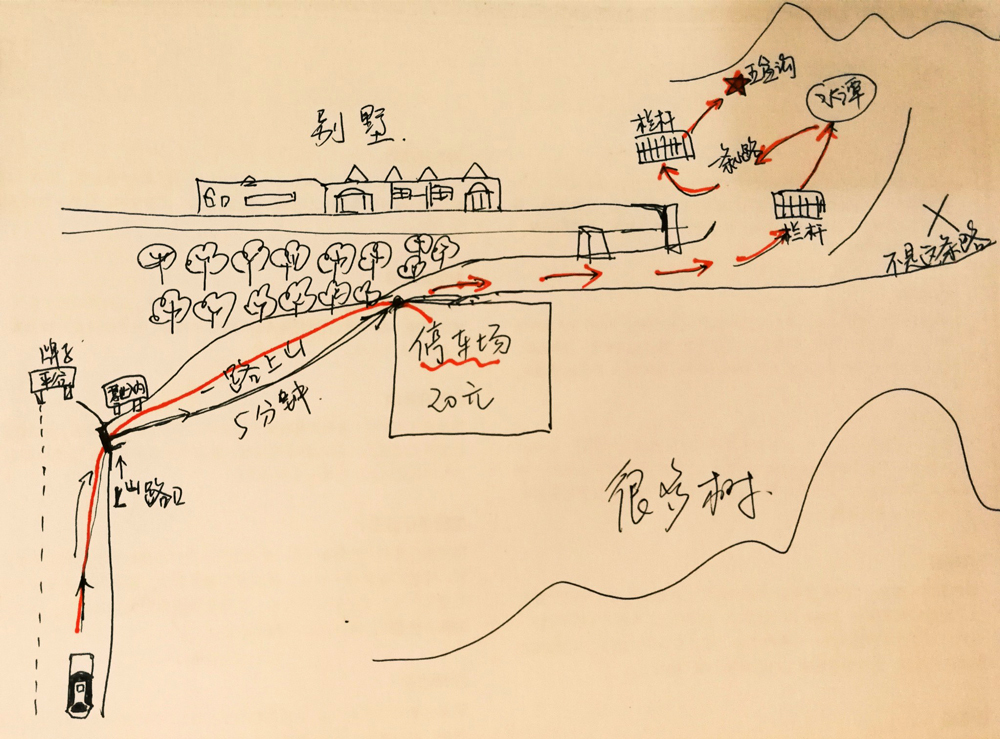 五金沟
水潭
栏杆
别墅.
栏杆
不是这条路
停车场
20元
一路上山
5分钟.
牌子
上山路口
很多树.